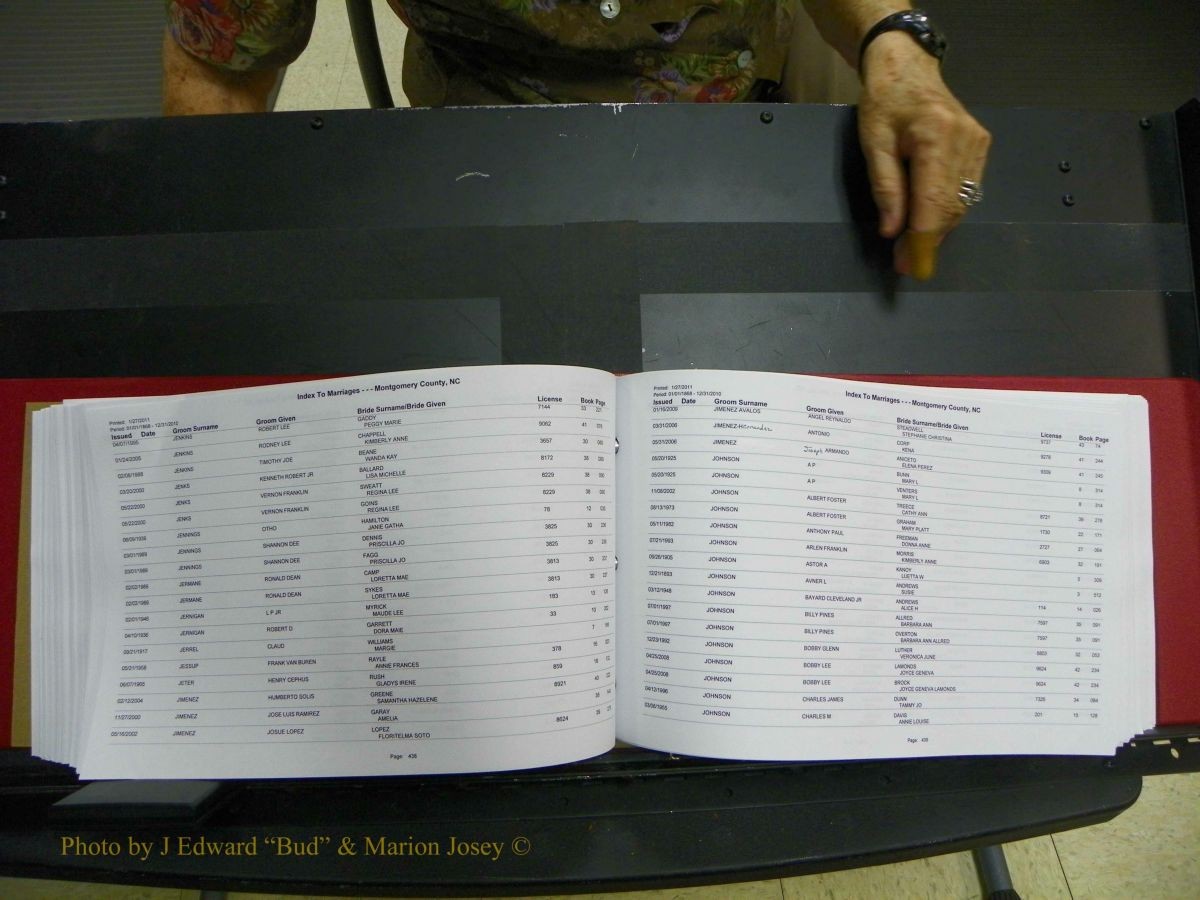 Index To Marriages - - - Montgomery County, NC
Printed: 1/27/2011
Period: 01/01/1868 - 12/31/2010
Issued Date Groom Surname Groom Given Bride Surname/Bride Given License Book Page
JENKINS ROBERT LEE GADDY 7144 33
PEGGY MARIE
01/24/2005 JENKINS RODNEY LEE CHAPPELL 9062 41
KIMBERLY ANNE
JENKINS TIMOTHY JOE BEANE 3657 30
WANDA KAY
03/20/2000 JENKS KENNETH ROBERT JR BALLARD 8172 38
LISA MICHELLE
05/22/2000 JENKS VERNON FRANKLIN SWEATT 8229 38
REGINA LEE
05/22/2000 JENKS VERNON FRANKLIN GOINS 8229 38
REGINA LEE
JENNINGS OTHO HAMILTON 78 12
JANIE GATHA
03/01/1989 JENNINGS SHANNON DEE DENNIS 3825 30
PRISCILLA JO
03/01/1989 JENNINGS SHANNON DEE FAGG 3825 30
PRISCILLA JO
02/02/1989 JERMANE RONALD DEAN CAMP 3813 30
LORETTA MAE
02/02/1989 JERMANE RONALD DEAN SYKES 3813 30
LORETTA MAE
02/01/1946 JERNIGAN L P JR MYRICK 193 13
MAUDE LEE
04/10/1936 JERNIGAN ROBERT D GARRETT 33 10
DORA MAIE
09/21/1917 JERREL CLAUD WILLIAMS 7
MARGIE
05/21/1958 JESSUP FRANK VAN BUREN RAYLE 378
ANNIE FRANCES
06/07/1965 JETER HENRY CEPHUS RUSH 859
GLADYS IRENE
02/12/2004 JIMENEZ HUMBERTO SOLIS GREENE 8921
SAMANTHA HAZELENE
11/27/2000 JIMENEZ JOSE LUIS RAMIREZ GARAY
AMELIA
05/16/2002 JIMENEZ JOSUE LOPEZ LOPEZ 8624
FLORITELMA SOTO
Page: 438
Index To Marriages - - - Montgomery County, NC
Printed: 1/27/2011
Period: 01/01/1868 - 12/31/2010
Issued Date Groom Surname Groom Given Bride Surname/Bride Given License Book Page
01/16/2009 JIMENEZ AVALOS ANGEL REYNALDO STEAGWELL 9737 43 74
STEPHANIE CHRISTINA
03/31/2006 JIMENEZ-Hernandez ANTONIO CORP 9278 41 244
KENA
05/31/2006 JIMENEZ Joseph ARMANDO ANICETO 9309 41 245
ELENA PEREZ
05/20/1925 JOHNSON A P BUNN 8 314
MARY L
05/20/1925 JOHNSON A P VENTERS 8 314
MARY L
11/08/2002 JOHNSON ALBERT FOSTER TREECE 8721 39 278
CATHY ANN
08/13/1973 JOHNSON ALBERT FOSTER GRAHAM 1730 22 171
MARY PLATT
05/11/1982 JOHNSON ANTHONY PAUL FREEMAN 2727 27 064
DONNA ANNE
07/21/1993 JOHNSON ARLEN FRANKLIN MORRIS 6903 32 191
KIMBERLY ANNE
09/26/1905 JOHNSON ASTOR A KANOY 5 309
LUETTA W
12/21/1893 JOHNSON AVNER L ANDREWS 3 512
SUSIE
03/12/1948 JOHNSON BAYARD CLEVELAND JR ANDREWS 114 14 026
ALICE H
07/01/1997 JOHNSON BILLY PINES ALLRED 7597 35 091
BARBARA ANN
07/01/1997 JOHNSON BILLY PINES OVERTON 7597 35 091
BARBARA ANN ALLRED
12/23/1992 JOHNSON BOBBY GLENN LUTHER 6803 32 053
VERONICA JUNE
04/25/2008 JOHNSON BOBBY LEE LAMONDS 9624 42 234
JOYCE GENEVA
04/25/2008 JOHNSON BOBBY LEE BROCK 9624 42 234
JOYCE GENEVA LAMONDS
04/12/1996 JOHNSON CHARLES JAMES DUNN 7326 34 084
TAMMY JO
03/06/1955 JOHNSON CHARLES M DAVIS 201 15 128
ANNIE LOUISE
Page:
Photo by J Edward “Bud” & Marion Josey ©